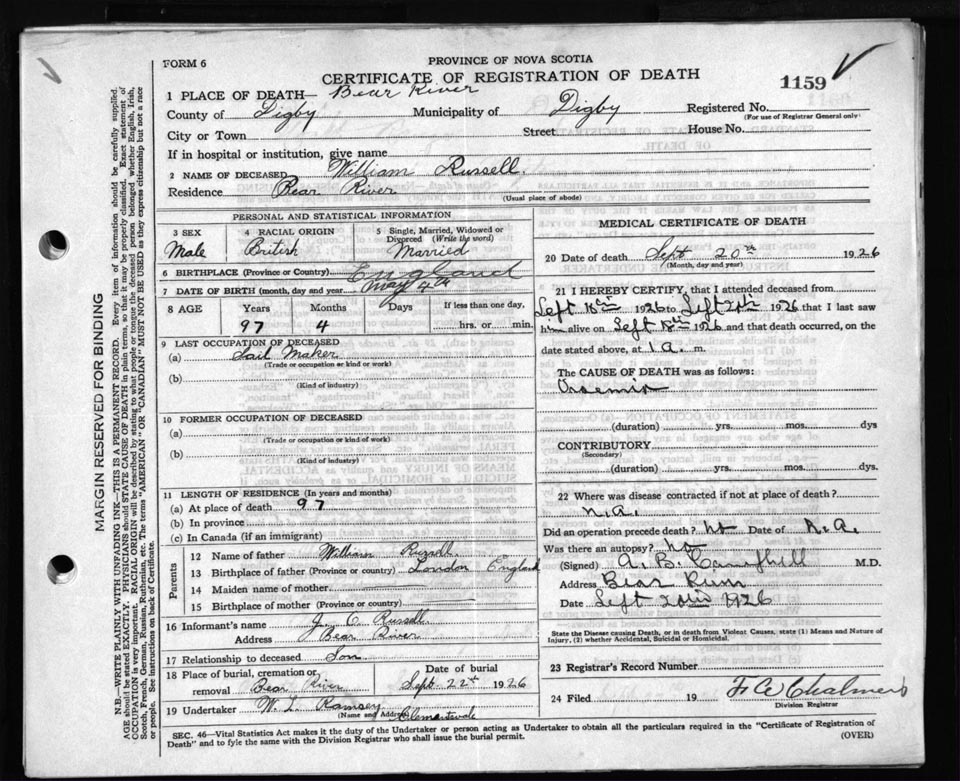 FORM 6
PROVINCE OF NOVA SCOTIA
CERTIFICATE OF REGISTRATION OF DEATH
1159
1 PLACE OF DEATH— Bear River
County of Digby Municipality of Digby Registered No.
(For use of Registrar General only)
City or Town Street House No.
If in hospital or institution, give name
2 NAME OF DECEASED William Russell.
Residence Bear River
(Usual place of abode)
PERSONAL AND STATISTICAL INFORMATION
3 SEX 4 RACIAL ORIGIN 5 Single, Married, Widowed or
Divorced (Write the word)
Male British Married
6 BIRTHPLACE (Province or Country) England
7 DATE OF BIRTH (month, day and year) May 4th
8 AGE Years Months Days If less than one day,
97 4 hrs. or min.
9 LAST OCCUPATION OF DECEASED
(a) Sail Maker
(Trade or occupation or kind of work)
(b)
(Kind of industry)
10 FORMER OCCUPATION OF DECEASED
(a)
(Trade or occupation or kind of work)
(b)
(Kind of industry)
11 LENGTH OF RESIDENCE (In years and months)
(a) At place of death 97
(b) In province
(c) In Canada (if an immigrant)
Parents
12 Name of father William Russell
13 Birthplace of father (Province or country) London England
14 Maiden name of mother
15 Birthplace of mother (Province or country)
16 Informant's name J. C. Russell
Address Bear River
17 Relationship to deceased Son
18 Place of burial, cremation or Date of burial
removal Bear River Sept 22nd 1926
19 Undertaker W. L. Ramsey
(Name and Address) Clementsvale
MEDICAL CERTIFICATE OF DEATH
20 Date of death Sept 20th 1926
(Month, day and year)
21 I HEREBY CERTIFY, that I attended deceased from
Sept 18th 1926 to Sept 20th 1926 that I last saw
him alive on Sept 18th 1926 and that death occurred, on the
date stated above, at 1 a. m.
The CAUSE OF DEATH was as follows:
Uraemia
(duration) yrs. mos. dys
CONTRIBUTORY
(Secondary)
(duration) yrs. mos. dys.
22 Where was disease contracted if not at place of death?
N.A.
Did an operation precede death? No Date of N.A.
Was there an autopsy? No
(Signed) A. B. Campbell M.D.
Address Bear River
Date Sept 20th 1926
State the Disease causing Death, or in death from Violent Causes, state (1) Means and Nature of
Injury, (2) whether Accidental, Suicidal or Homicidal.
23 Registrar's Record Number
24 Filed 19 Chalmers
Division Registrar
SEC. 46—Vital Statistics Act makes it the duty of the Undertaker or person acting as Undertaker to obtain all the particulars required in the "Certificate of Registration of
Death" and to fyle the same with the Division Registrar who shall issue the burial permit. (OVER)
MARGIN RESERVED FOR BINDING
N.B.—WRITE PLAINLY WITH UNFADING INK—THIS IS A PERMANENT RECORD. Every item of information should be carefully supplied.
AGE should be stated EXACTLY. PHYSICIANS should STATE CAUSE OF DEATH in plain terms, so that it may be properly classified. Exact statement of
OCCUPATION is very important. RACIAL ORIGIN will be described by stating to what people or tongue the deceased person belonged whether English, Irish,
Scotch, French, German, Russian, Ruthenian, etc. The terms "AMERICAN" OR "CANADIAN" MUST NOT BE USED as they express citizenship but not a race
or people. See instructions on back of Certificate.